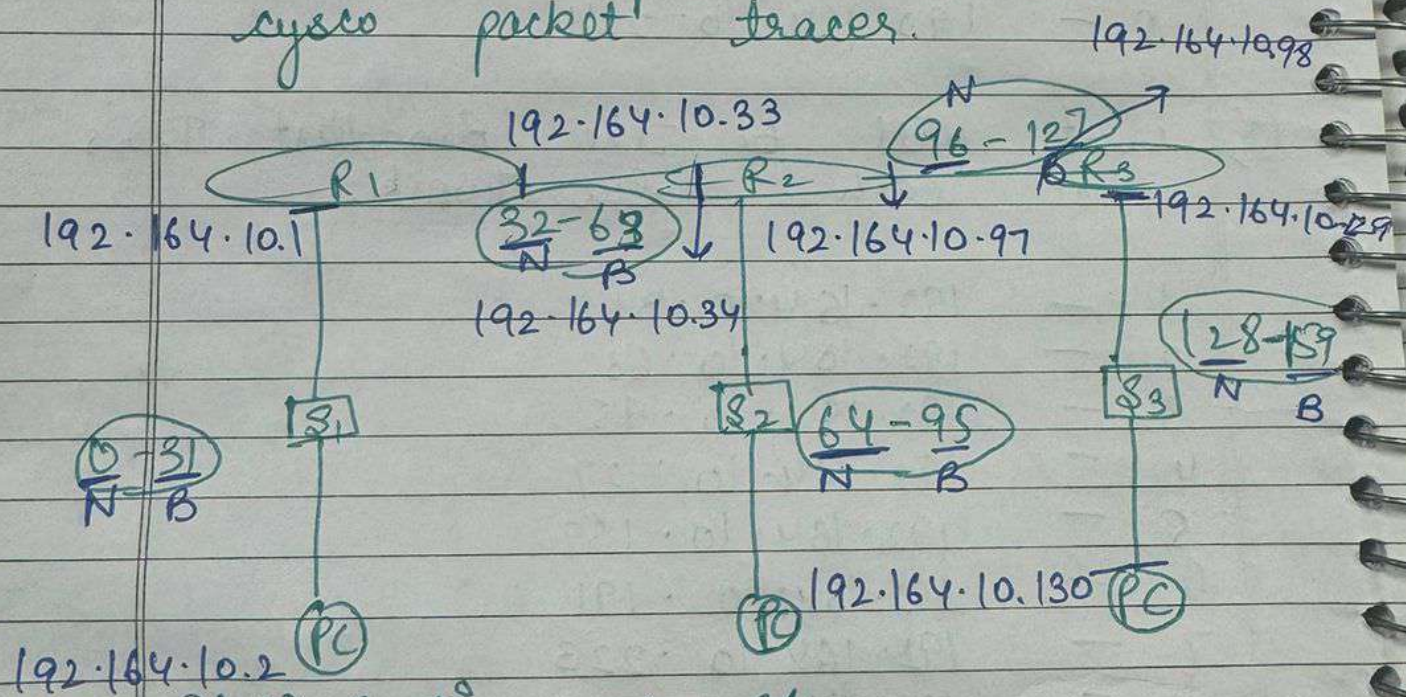 cysco packet tracer.
192.164.10.98
192.164.10.33
N
96-127
B
R1
R2
R3
192.164.10.1
32-63
N B
192.164.10.97
192.164.10.129
192.164.10.34
128-159
N B
S1
S2
S3
64-95
N B
0-31
N B
192.164.10.130
PC
PC
PC
192.164.10.2